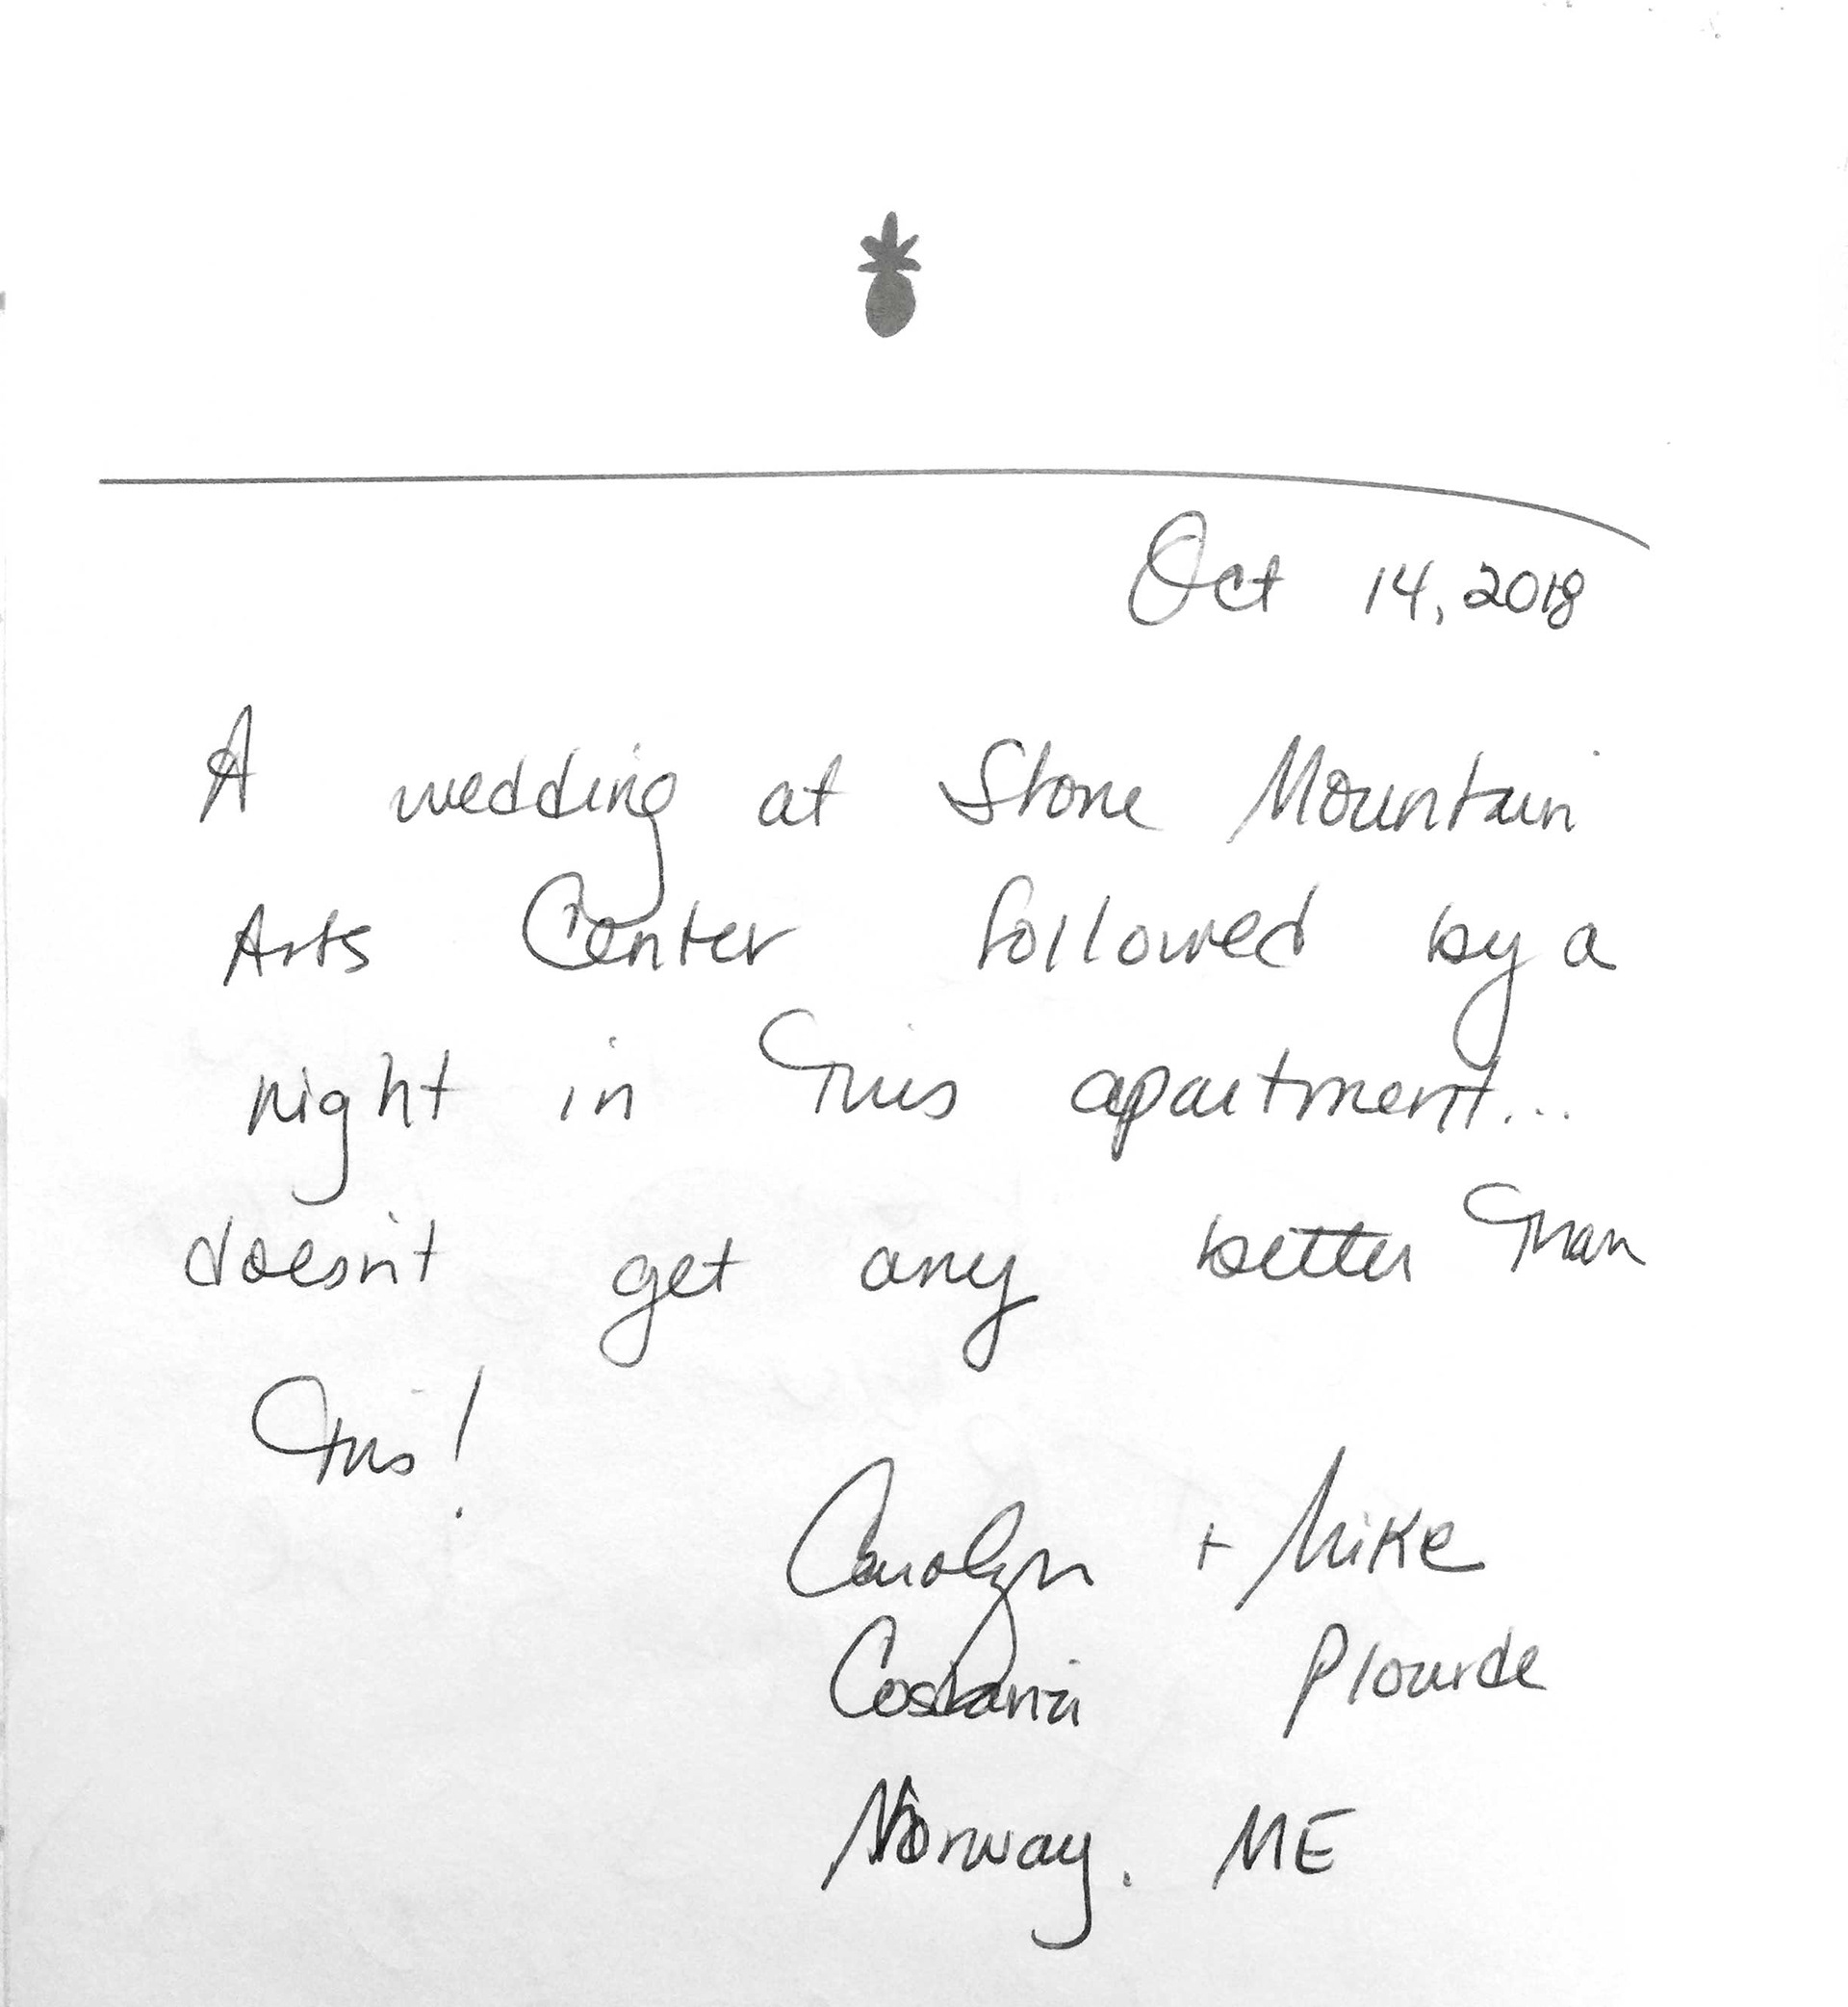 Oct 14, 2018
A wedding at Stone Mountain
Arts Center followed by a
night in this apartment...
doesn't get any better than
this!
Carolyn + Mike
Costanza Plourde
Norway, ME